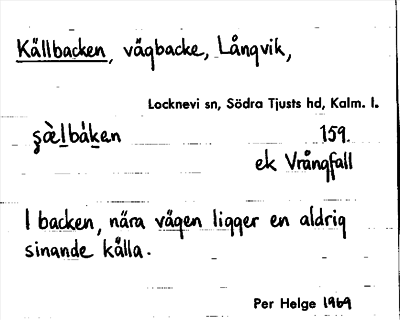 Källbacken, vägbacke, Långvik,
Locknevi sn, Södra Tjusts hd, Kalm. l.
ʂὲl̠bák̠en 159.
ek Vrångfall
I backen, nära vägen ligger en aldrig
sinande källa.
Per Helge 1969